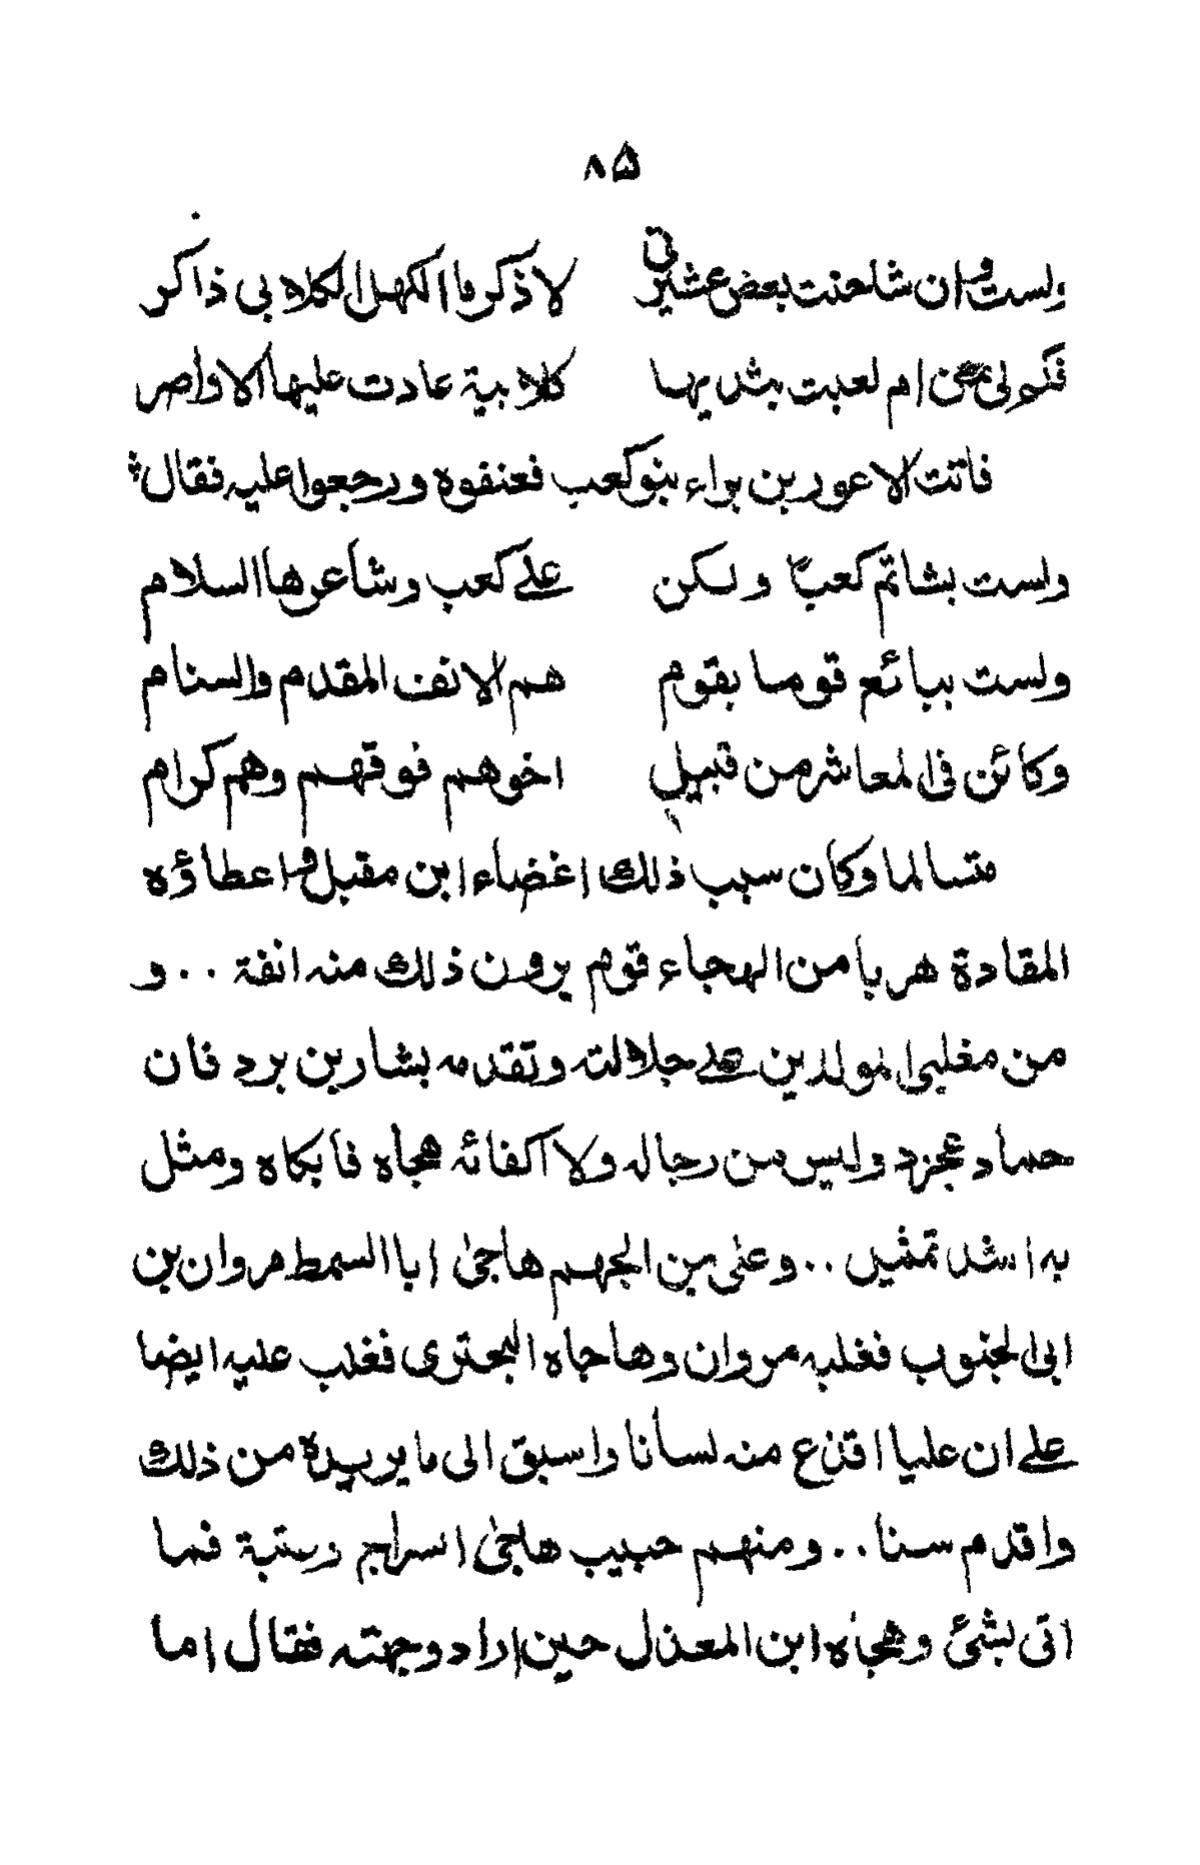 ۸۵
ولست وان شاحنت بعض عشيرتي لاذكر ما الكهل الكلابي ذاكر
فكم لي من ام لعبت بثديها كلابية عادت عليها الاواصر
فاتت الاعور بن براء بنو كعب فعنفوه ورجعوا عليه فقال
ولست بشاتم كعبا ولكن على كعب وشاعرها السلام
ولست ببائع قوما بقوم هم الانف المقدم والسنام
وكائن في المعاشر من قبيل اخوهم فوقهم وهم كرام
متسالما وكان سبب ذلك اغضاء ابن مقبل واعطاؤه
المقادة هربا من الهجاء قوم يرون ذلك منه انفة ۰۰ و
من مغلبي المولدين على جلالته وتقدمه بشار بن برد فان
حماد عجرد وليس من رجاله ولا اكفائه هجاه فابكاه ومثل
به اشد تمثيل ۰۰ وعلي بن الجهم هاجى ابا السمط مروان بن
ابي الجنوب فغلبه مروان وهاجاه البحتري فغلب عليه ايضا
على ان عليا اقذع منه لسانا واسبق الى ما يريده من ذلك
واقدم سنا ۰۰ ومنهم حبيب هاجى السراج وعتبة فما
اتى بشئ وهجاه ابن المعذل حين اراد وجهته فقال اما